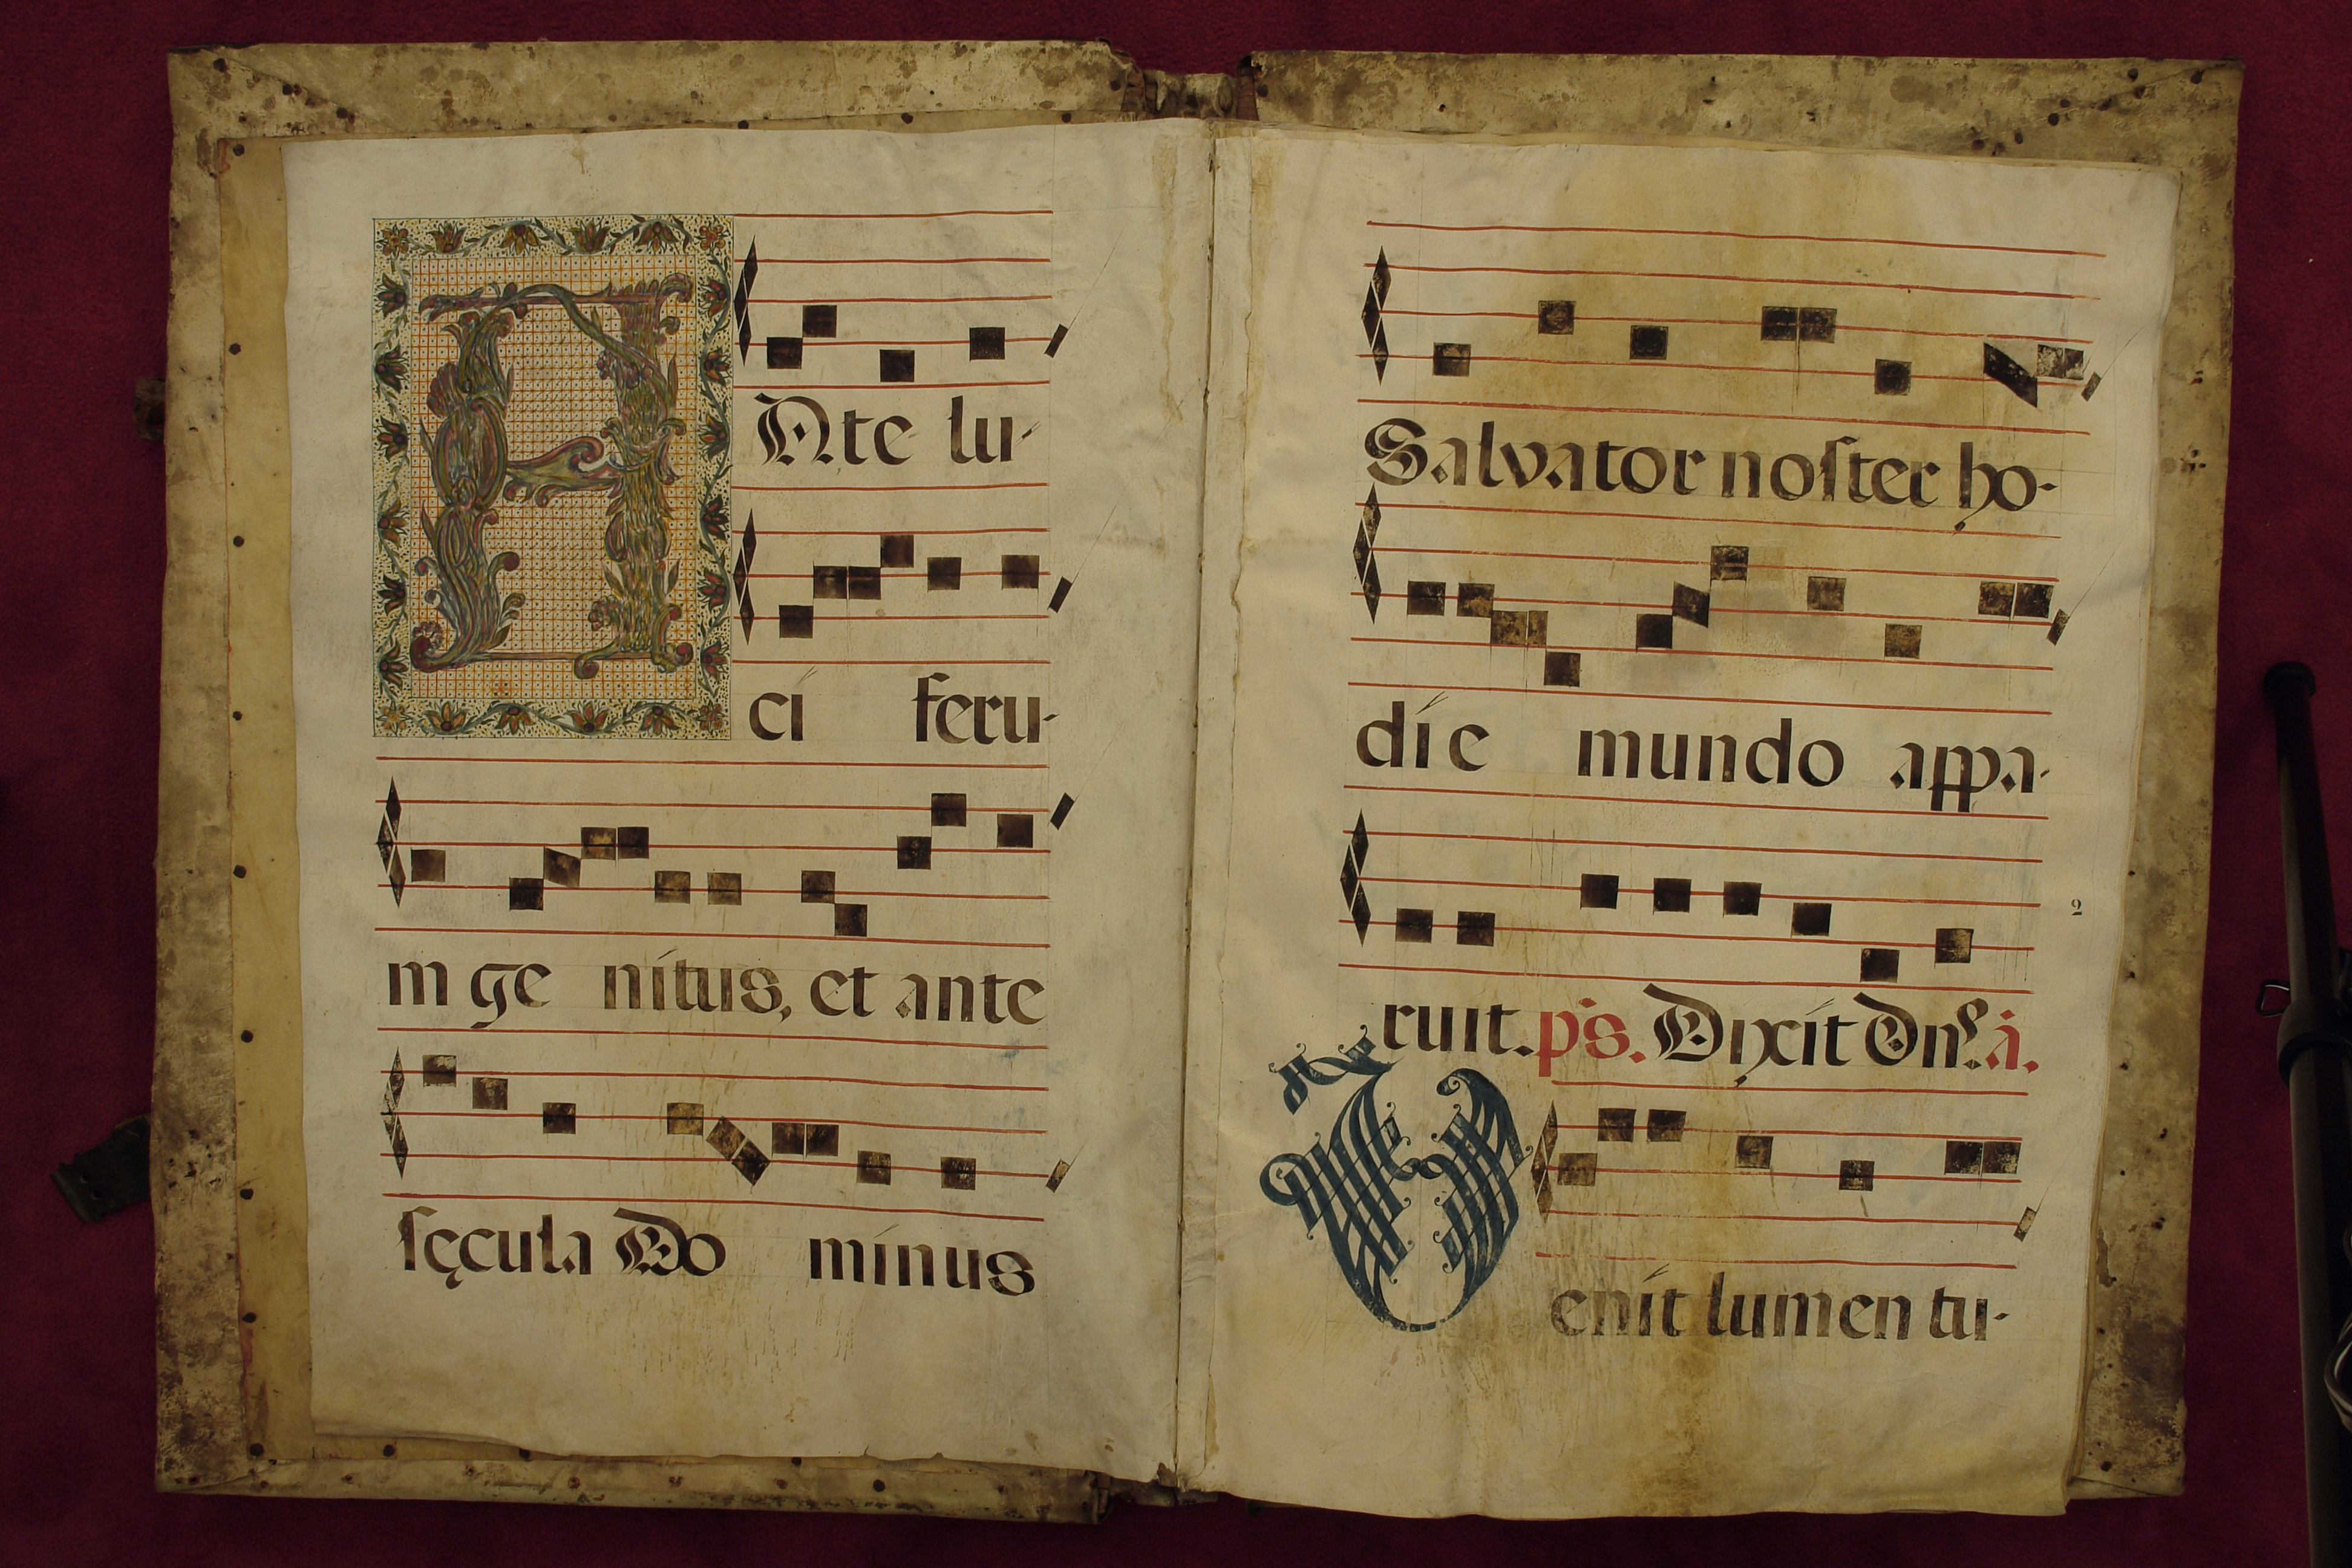 A Nte lu-
cí feru-
m ge nítus, et ante
sęcula Do mínus
Salvator noster ho-
díe mundo appa-
2
ruit. ps. Dixít Dn̄s. á.
Venít lumen tu-